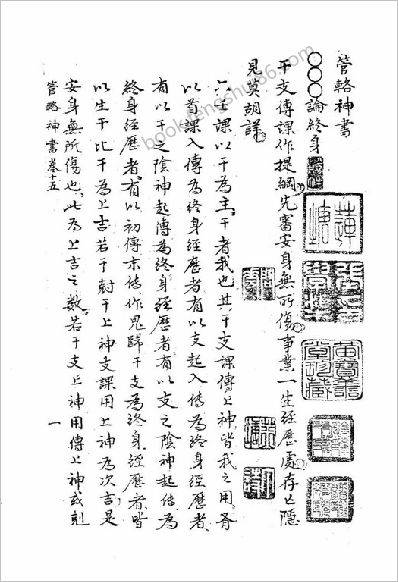 管輅神書
〇〇〇論終身
干支傳課作提綱先審安身無所傷事業一生經歷處存亡隱
見莫胡詳
六壬課以干為主干者我也其干支課傳上神皆我之用有
以首課入傳為終身經歷者有以支起入傳為終身經歷者
有以干之陰神起傳為終身經歷者有以支之陰神起傳為
終身經歷者有以初傳末傳作鬼歸干支為終身經歷者皆
以生干比干為上吉若干尅干上神支課用上神為次吉是
安身無所傷也此為上吉之數若干支上神用傳上神或刻
管輅神書卷十五
一